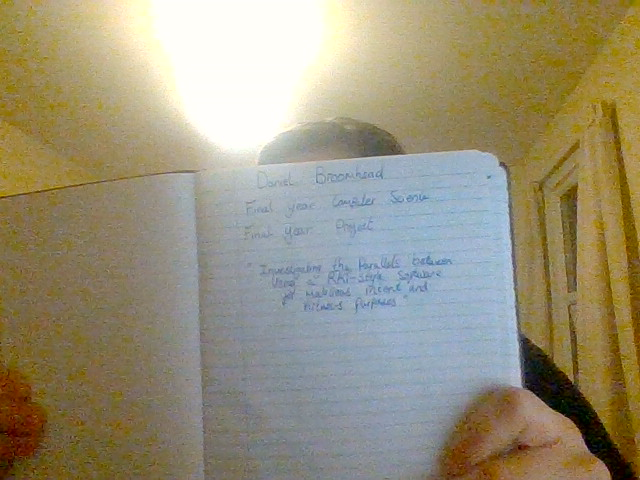 Daniel Broomhead
Final year Computer Science
Final year Project
"Investigating the Parallels between
Using a RAT-Style Software
for Malicious Intent and
purposes"